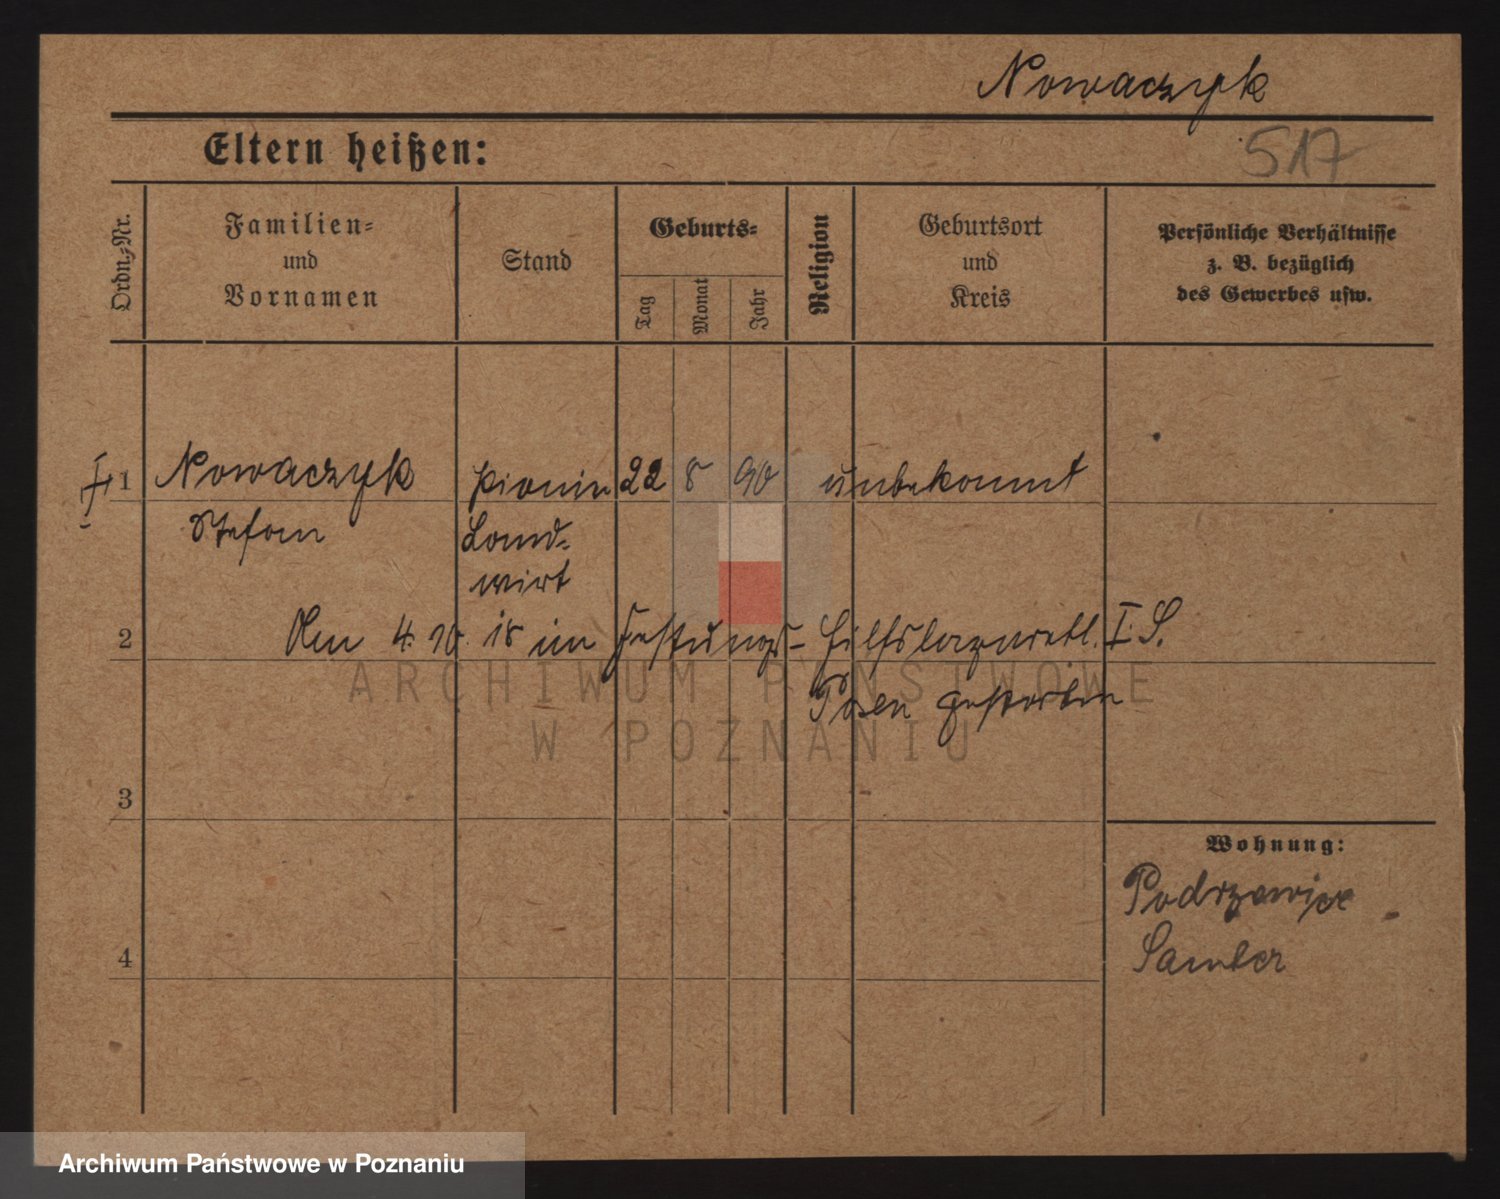 Nowaczyk
Eltern heißen:
517
Ordn.-Nr.
Familien-
und
Vornamen
Stand
Geburts-
Tag
Monat
Jahr
Religion
Geburtsort
und
Kreis
Persönliche Verhältnisse
z. B. bezüglich
des Gewerbes usw.
1 Nowaczyk Pionier 22 8 90 unbekannt
Stefan Land-
wirt
2 Am 4. 10. 18 im Festungs- Hilfslazarett. I. S.
Posen gestorben
ARCHIWUM PAŃSTWOWE
W POZNANIU
3
Wohnung:
Podrzewice
Samter
4
Archiwum Państwowe w Poznaniu